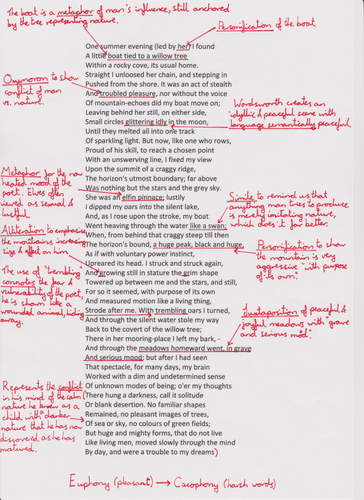 The boat is a metaphor of man's influence, still anchored
by the tree representing nature.
Personification of the boat
One summer evening (led by her) I found
A little boat tied to a willow tree
Within a rocky cove, its usual home.
Straight I unloosed her chain, and stepping in
Pushed from the shore. It was an act of stealth
And troubled pleasure, nor without the voice
Of mountain-echoes did my boat move on;
Leaving behind her still, on either side,
Small circles glittering idly in the moon,
Until they melted all into one track
Of sparkling light. But now, like one who rows,
Proud of his skill, to reach a chosen point
With an unswerving line, I fixed my view
Upon the summit of a craggy ridge,
The horizon's utmost boundary; far above
Was nothing but the stars and the grey sky.
She was an elfin pinnace; lustily
I dipped my oars into the silent lake,
And, as I rose upon the stroke, my boat
Went heaving through the water like a swan;
When, from behind that craggy steep till then
The horizon's bound, a huge peak, black and huge,
As if with voluntary power instinct,
Upreared its head. I struck and struck again,
And growing still in stature the grim shape
Towered up between me and the stars, and still,
For so it seemed, with purpose of its own
And measured motion like a living thing,
Strode after me. With trembling oars I turned,
And through the silent water stole my way
Back to the covert of the willow tree;
There in her mooring-place I left my bark, -
And through the meadows homeward went, in grave
And serious mood; but after I had seen
That spectacle, for many days, my brain
Worked with a dim and undetermined sense
Of unknown modes of being; o'er my thoughts
There hung a darkness, call it solitude
Or blank desertion. No familiar shapes
Remained, no pleasant images of trees,
Of sea or sky, no colours of green fields;
But huge and mighty forms, that do not live
Like living men, moved slowly through the mind
By day, and were a trouble to my dreams
Oxymoron to show
conflict of man
vs. nature.
Wordsworth creates an
idyllic & peaceful scene with
language semantically peaceful.
Metaphor for the now
heated mood of the
poet. Elves often
viewed as sexual &
lustful.
Simile to remind us that
anything man tries to produce
is merely imitating nature,
which does it far better.
Alliteration to emphasise
the mountains increasing
size & effect on him
Personification to show
the mountain is very
aggressive "with purpose
of its own"
The use of "trembling"
connotes the fear &
vulnerability of the poet,
he is shaken like a
wounded animal, hiding
away.
Juxtaposition of peaceful &
joyful meadows with grave
and serious mood".
Represents the conflict
in his mind of the calm
nature he knew as a
child with darker
nature that he has now
discovered as he has
matured.
Euphony (pleasant) → Cacophony (harsh words)